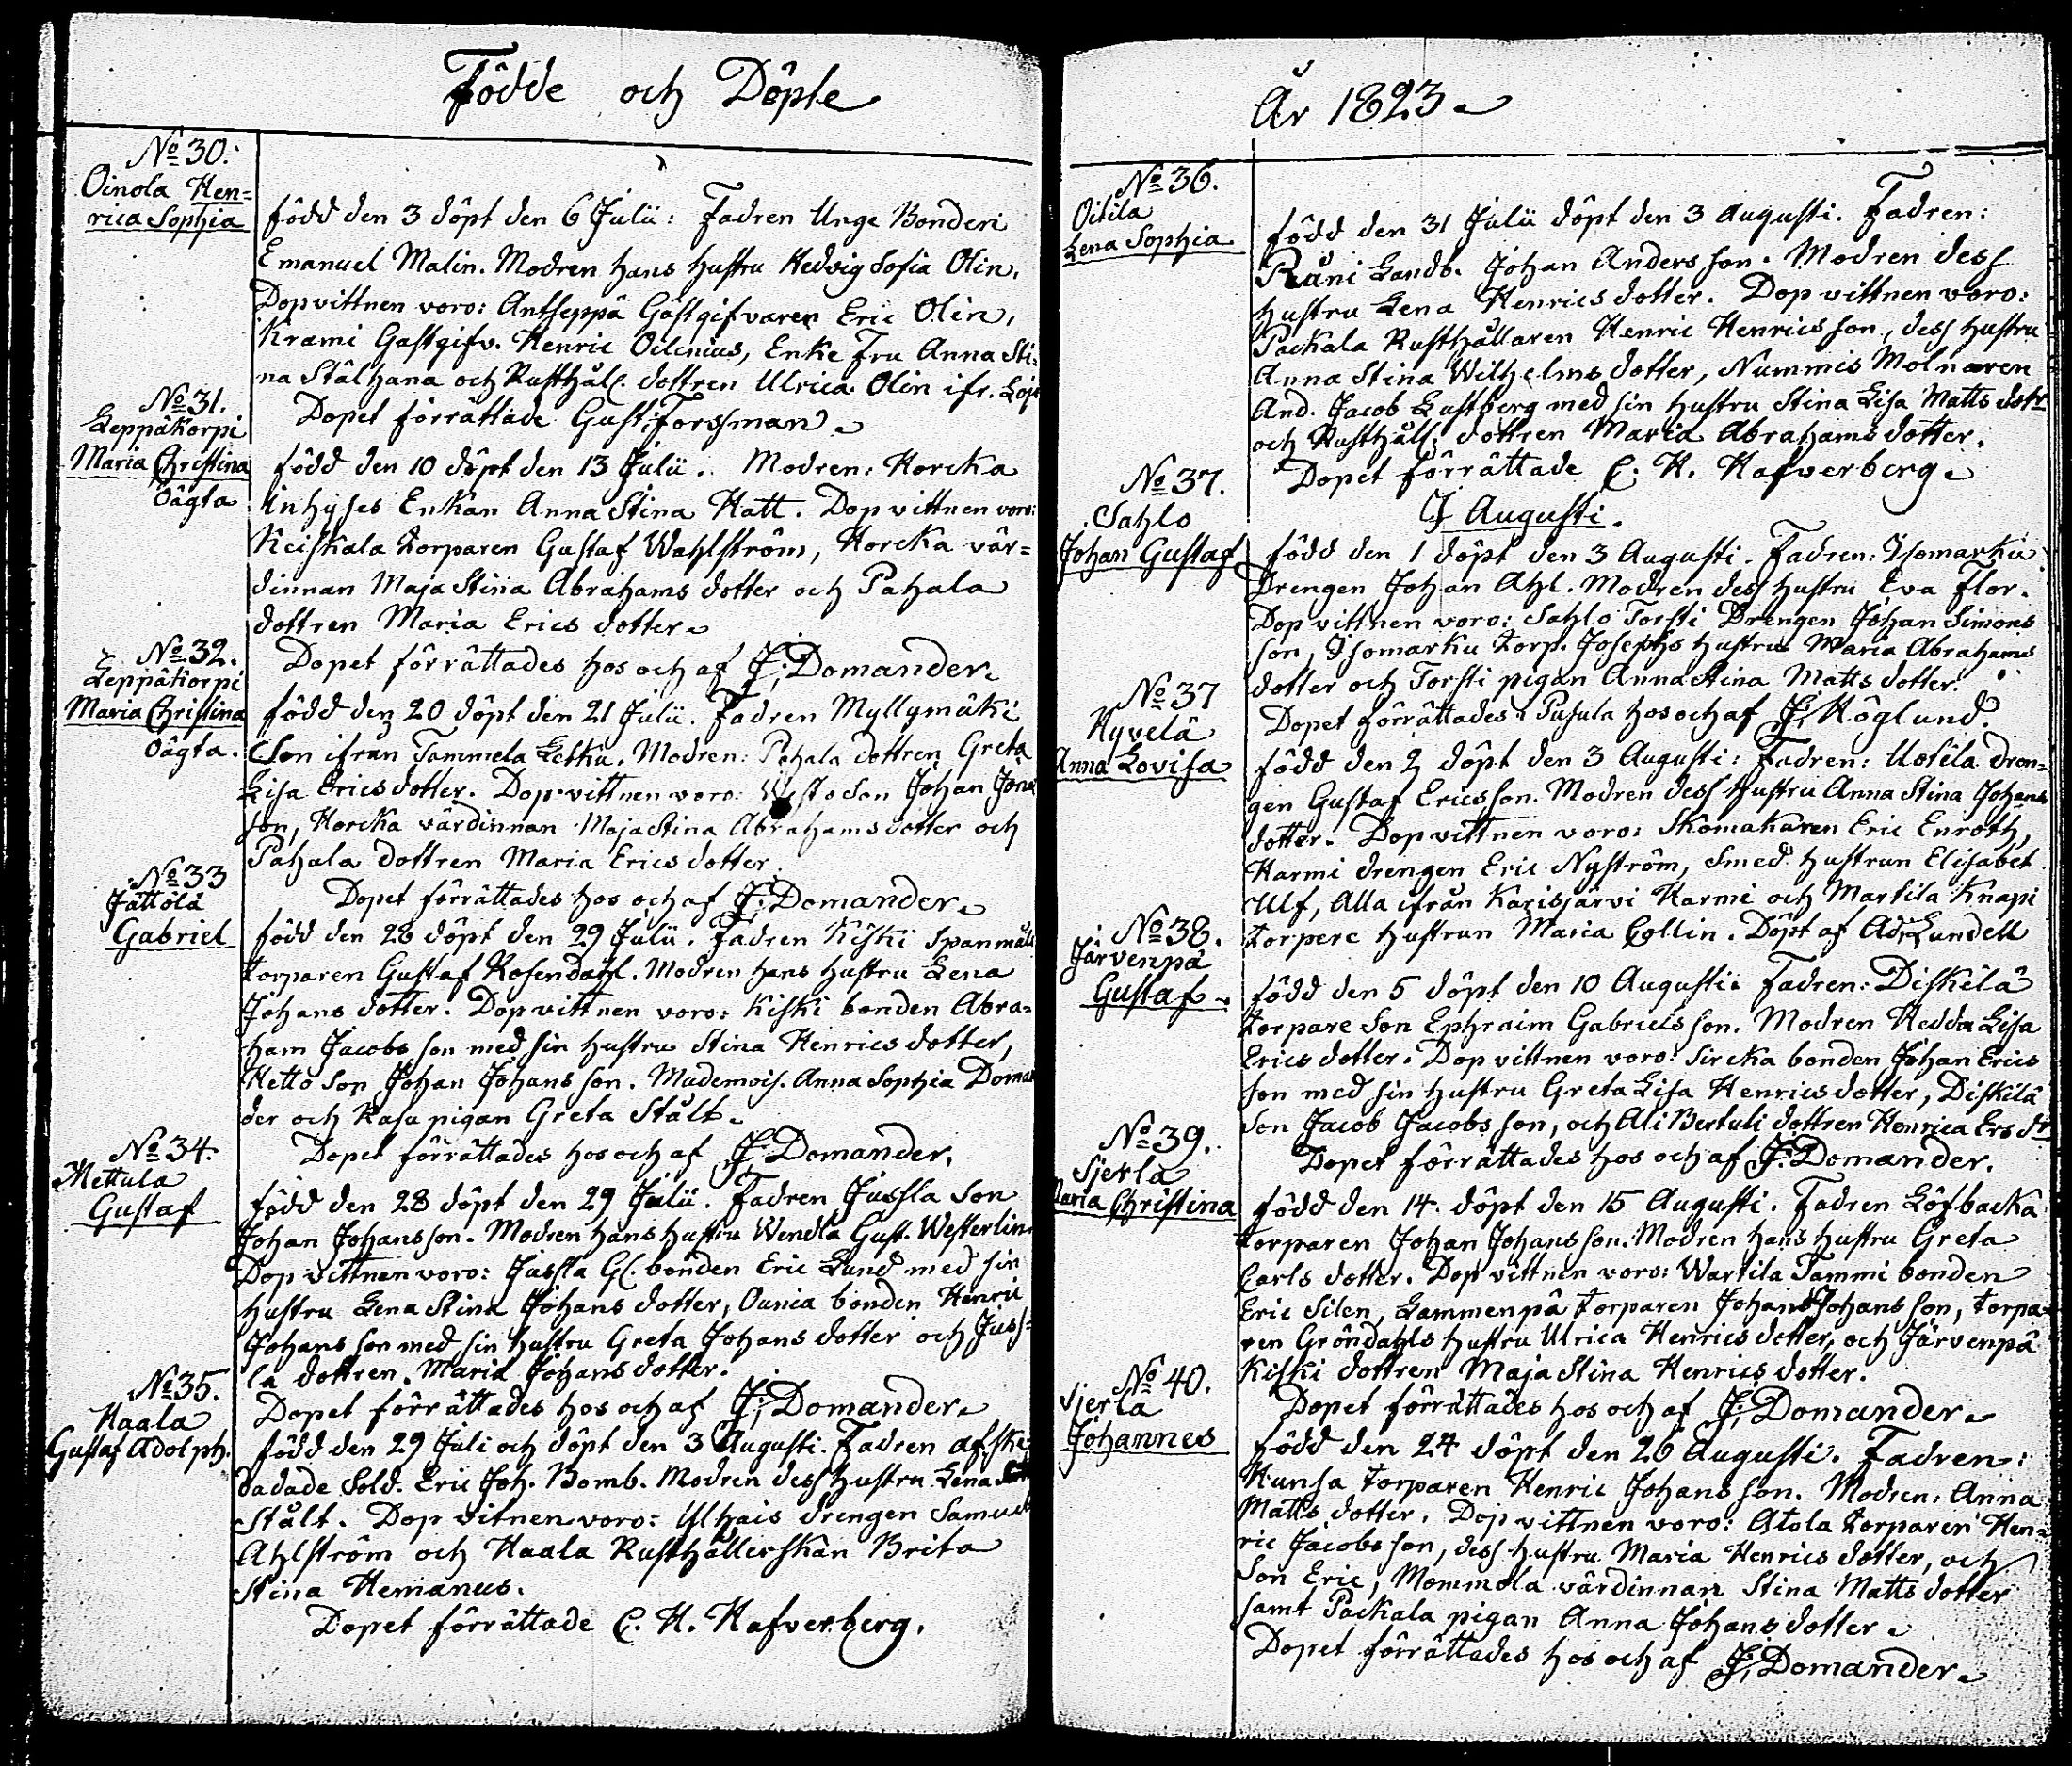 Födde och Döpte
No 30.
Oinola Hen=
rica Sophia
född den 3 döpt den 6 Julii: Fadren Unge Bonden
Emanuel Malin. Modren hans hustru Hedvig Sofia Olin.
Dopvittnen voro: Antseppä Gästgifvaren Eric Olin,
Krami Gästgifv. Henric Oilenius, Enke Fru Anna Sti=
na Stålhana och Rusthåll. dottren Ulrica Olin ifr. Loj
Dopet förrättade Gust. Forssman.
No 31.
Leppäkorpi
Maria Christina
Oägta
född den 10 döpt den 13 Julii. Modren: Horcka
Inhyses Enkan Anna Stina Hatt. Dop vittnen voro:
Keiskala torparen Gustaf Wahlström, Horcka vär=
dinnan Maja Stina Abrahams dotter och Pahala
dottren Maria Erics dotter.
Dopet förrättades hos och af J. Domander.
No 32.
Leppäkorpi
Maria Christina
oägta.
född den 20 döpt den 21 Julii. Fadren Myllymäki
Son ifrån Tammela Letku. Modren: Pahala dottren Greta
Lisa Erics dotter. Dop vittnen voro: son Johan Jons
son, Horcka värdinnan Maja Stina Abrahams dotter och
Pahala dottren Maria Erics dotter.
Dopet förrättades hos och af J. Domander.
No 33
Jättölä
Gabriel
född den 28 döpt den 29 Julii. Fadren Kiski Spanmåls
torparen Gustaf Rosendahl. Modren hans hustru Lena
Johans dotter. Dop vittnen voro: Kiski bonden Abra=
ham Jacobs son med sin hustru Stina Henrics dotter,
Hetto son Johan Johans son. Mademois. Anna Sophia Doman
der och Kasu pigan Greta Stålt.
Dopet förrättades hos och af J. Domander.
No 34.
Mettula
Gustaf
född den 28 döpt den 29 Julii. Fadren Jussla Son
Johan Johansson. Modren hans hustru Wendla Gust. Westerlin.
Dop vittnen voro: Jussla Gl. bonden Eric Lund med sin
hustru Lena Stina Johans dotter, Ounia bonden Henric
Johans son med sin hustru Greta Johans dotter och Juss=
la dottren Maria Johans dotter.
Dopet förrättades hos och af J. Domander.
No 35.
Haala
Gustaf Adolph.
född den 29 Juli och döpt den 3 Augusti. Fadren afske
dadade Sold. Eric Joh. Bomb. Modren dess hustru Lena
Stålt. Dop vitnen voro: Ulhais drengen Samuel
Ahlström och Haala Rusthållerskan Brita
Stina Hemanus.
Dopet förrättade C. H. Hafverberg.
År 1823
No 36.
Oitila
Lena Sophia
född den 31 Julii döpt den 3 Augusti. Fadren:
Råni Landb. Johan Anders son. Modren dess
hustru Lena Henrics dotter. Dop vittnen voro:
Packala Rusthållaren Henric Henrics son, dess hustru
Anna Stina Wilhelms dotter, Nummis Molnaren
And. Jacob Lustberg med sin hustru Stina Lisa Matts dotr
och Rusthåll. dottren Maria Abrahams dotter.
Dopet förrättade C. H. Hafverberg.
I Augusti.
No 37.
Sahlo
Johan Gustaf
född den 1 döpt den 3 Augusti. Fadren: Isomarku
Drengen Johan Ahl. Modren dess hustru Eva Flor.
Dop vittnen voro: Sahlo Torsti Drengen Johan Simons
son, Isomarku torp. Josephs hustru Maria Abrahams
dotter och Torsti pigan Anna Stina Matts dotter.
Dopet förrättades i Pusula hos och af J. Höglund.
No 37
Hyvelä
Anna Lovisa
född den 2 döpt den 3 Augusti: Fadren: Uotila dren=
gen Gustaf Erics son. Modren dess hustru Anna Stina Johans
dotter. Dop vittnen voro: Skomakaren Eric Enroth,
Harmi drengen Eric Nyström, Smed hustrun Elisabet
Ulf, Alla ifrån Karisjärvi Harmi och Martila Knapi
torpere hustrun Maria Collin. Döpt af Ad. Lundell
No 38.
Järvenpä
Gustaf
född den 5 döpt den 10 Augusti. Fadren: Diskilä
torpare Son Ephraim Gabriels son. Modren Hedda Lisa
Erics dotter. Dop vittnen voro: Sircka bonden Johan Erics
son med sin hustru Greta Lisa Henrics dotter, Diskilä
Son Jacob Jacobs son, och Ali Bertuli dottren Henrica Ers dr
Dopet förrättades hos och af J. Domander.
No 39.
Sjerla
Maria Christina
född den 14. döpt den 15 Augusti. Fadren Löfbacka
torparen Johan Johans son. Modren hans hustru Greta
Carls dotter. Dop vittnen voro: Wartila Tammi bonden
Eric Silen, Lammenpä torparen Johan Johans son, torpa=
ren Gröndahls hustru Ulrica Henrics dotter, och Järvenpä
Kiski dottren Maja Stina Henrics dotter.
Dopet förrättades hos och af J. Domander.
No 40.
Sjerla
Johannes
född den 24 döpt den 26 Augusti. Fadren:
Hunsa torparen Henric Johans son. Modren: Anna
Matts dotter. Dop vittnen voro: Atola torparen Hen=
ric Jacobs son, dess hustru Maria Henrics dotter, och
Son Eric, Mommola värdinnan Stina Matts dotter
samt Packala pigan Anna Johans dotter.
Dopet förrättades hos och af J. Domander.